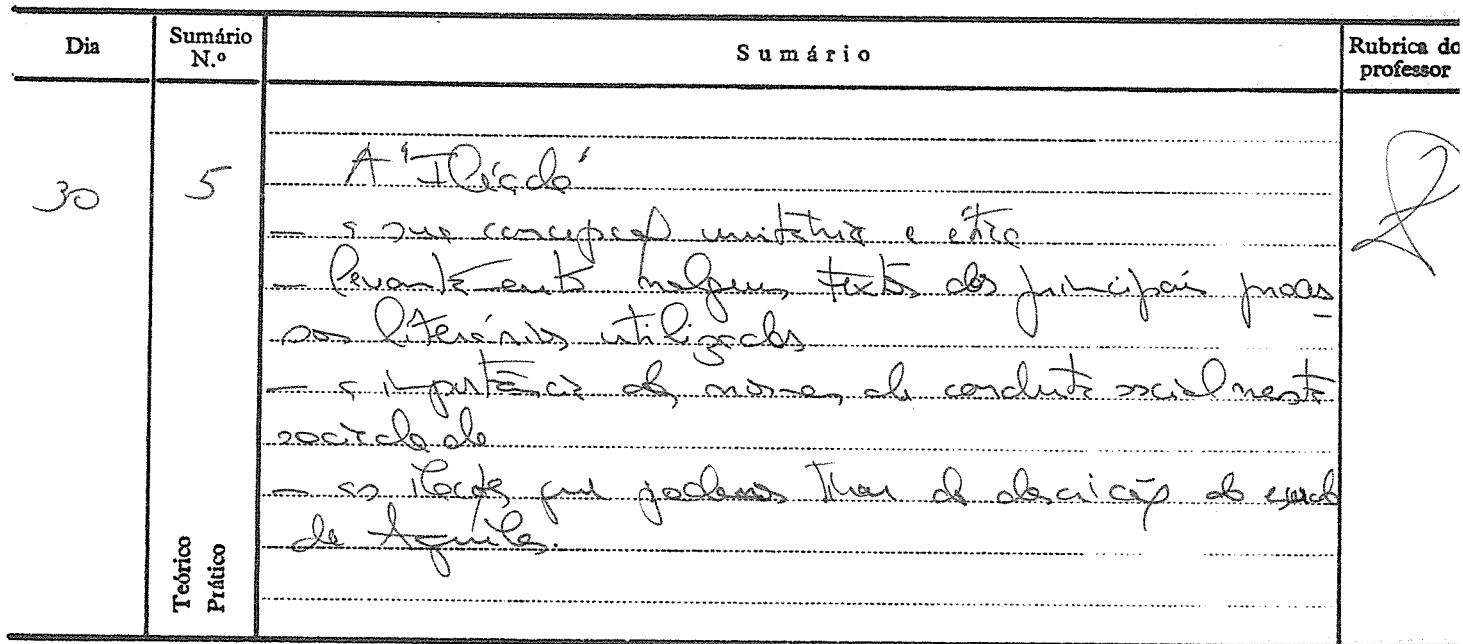 Dia
Sumário N.º
Sumário
Rubrica do professor
30
5
A "Ilíada"
- a sua concepção unitária e ética
- levantamento nalguns textos dos principais proces
sos literários utilizados
- a importância das normas de conduta social nesta
sociedade
- as ilações que podemos tirar da descrição do escudo
de Aquiles.
Teórico
Prático